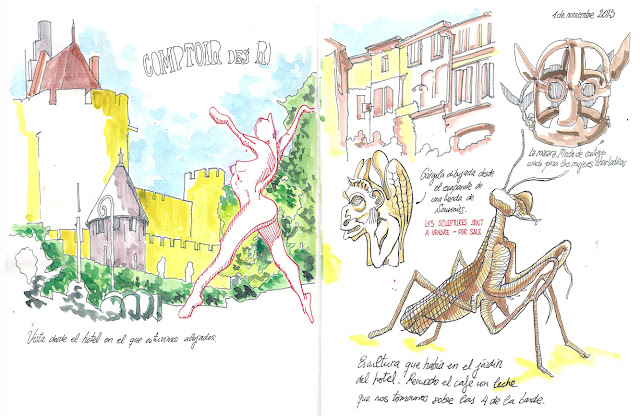 COMPTOIR DES R
Vista desde el hotel en el que estuvimos alojados.
1 de noviembre 2015
La máscara, Medio de castigo
usada para las mujeres charlatanas
Gárgola dibujada desde
el escaparate de
una tienda de
Souvenirs.
LES SCULPTURES SONT
A VENDRE - FOR SALE
Escultura que había en el jardín
del hotel. Recuerdo el café con leche
que nos tomamos sobre las 4 de la tarde.